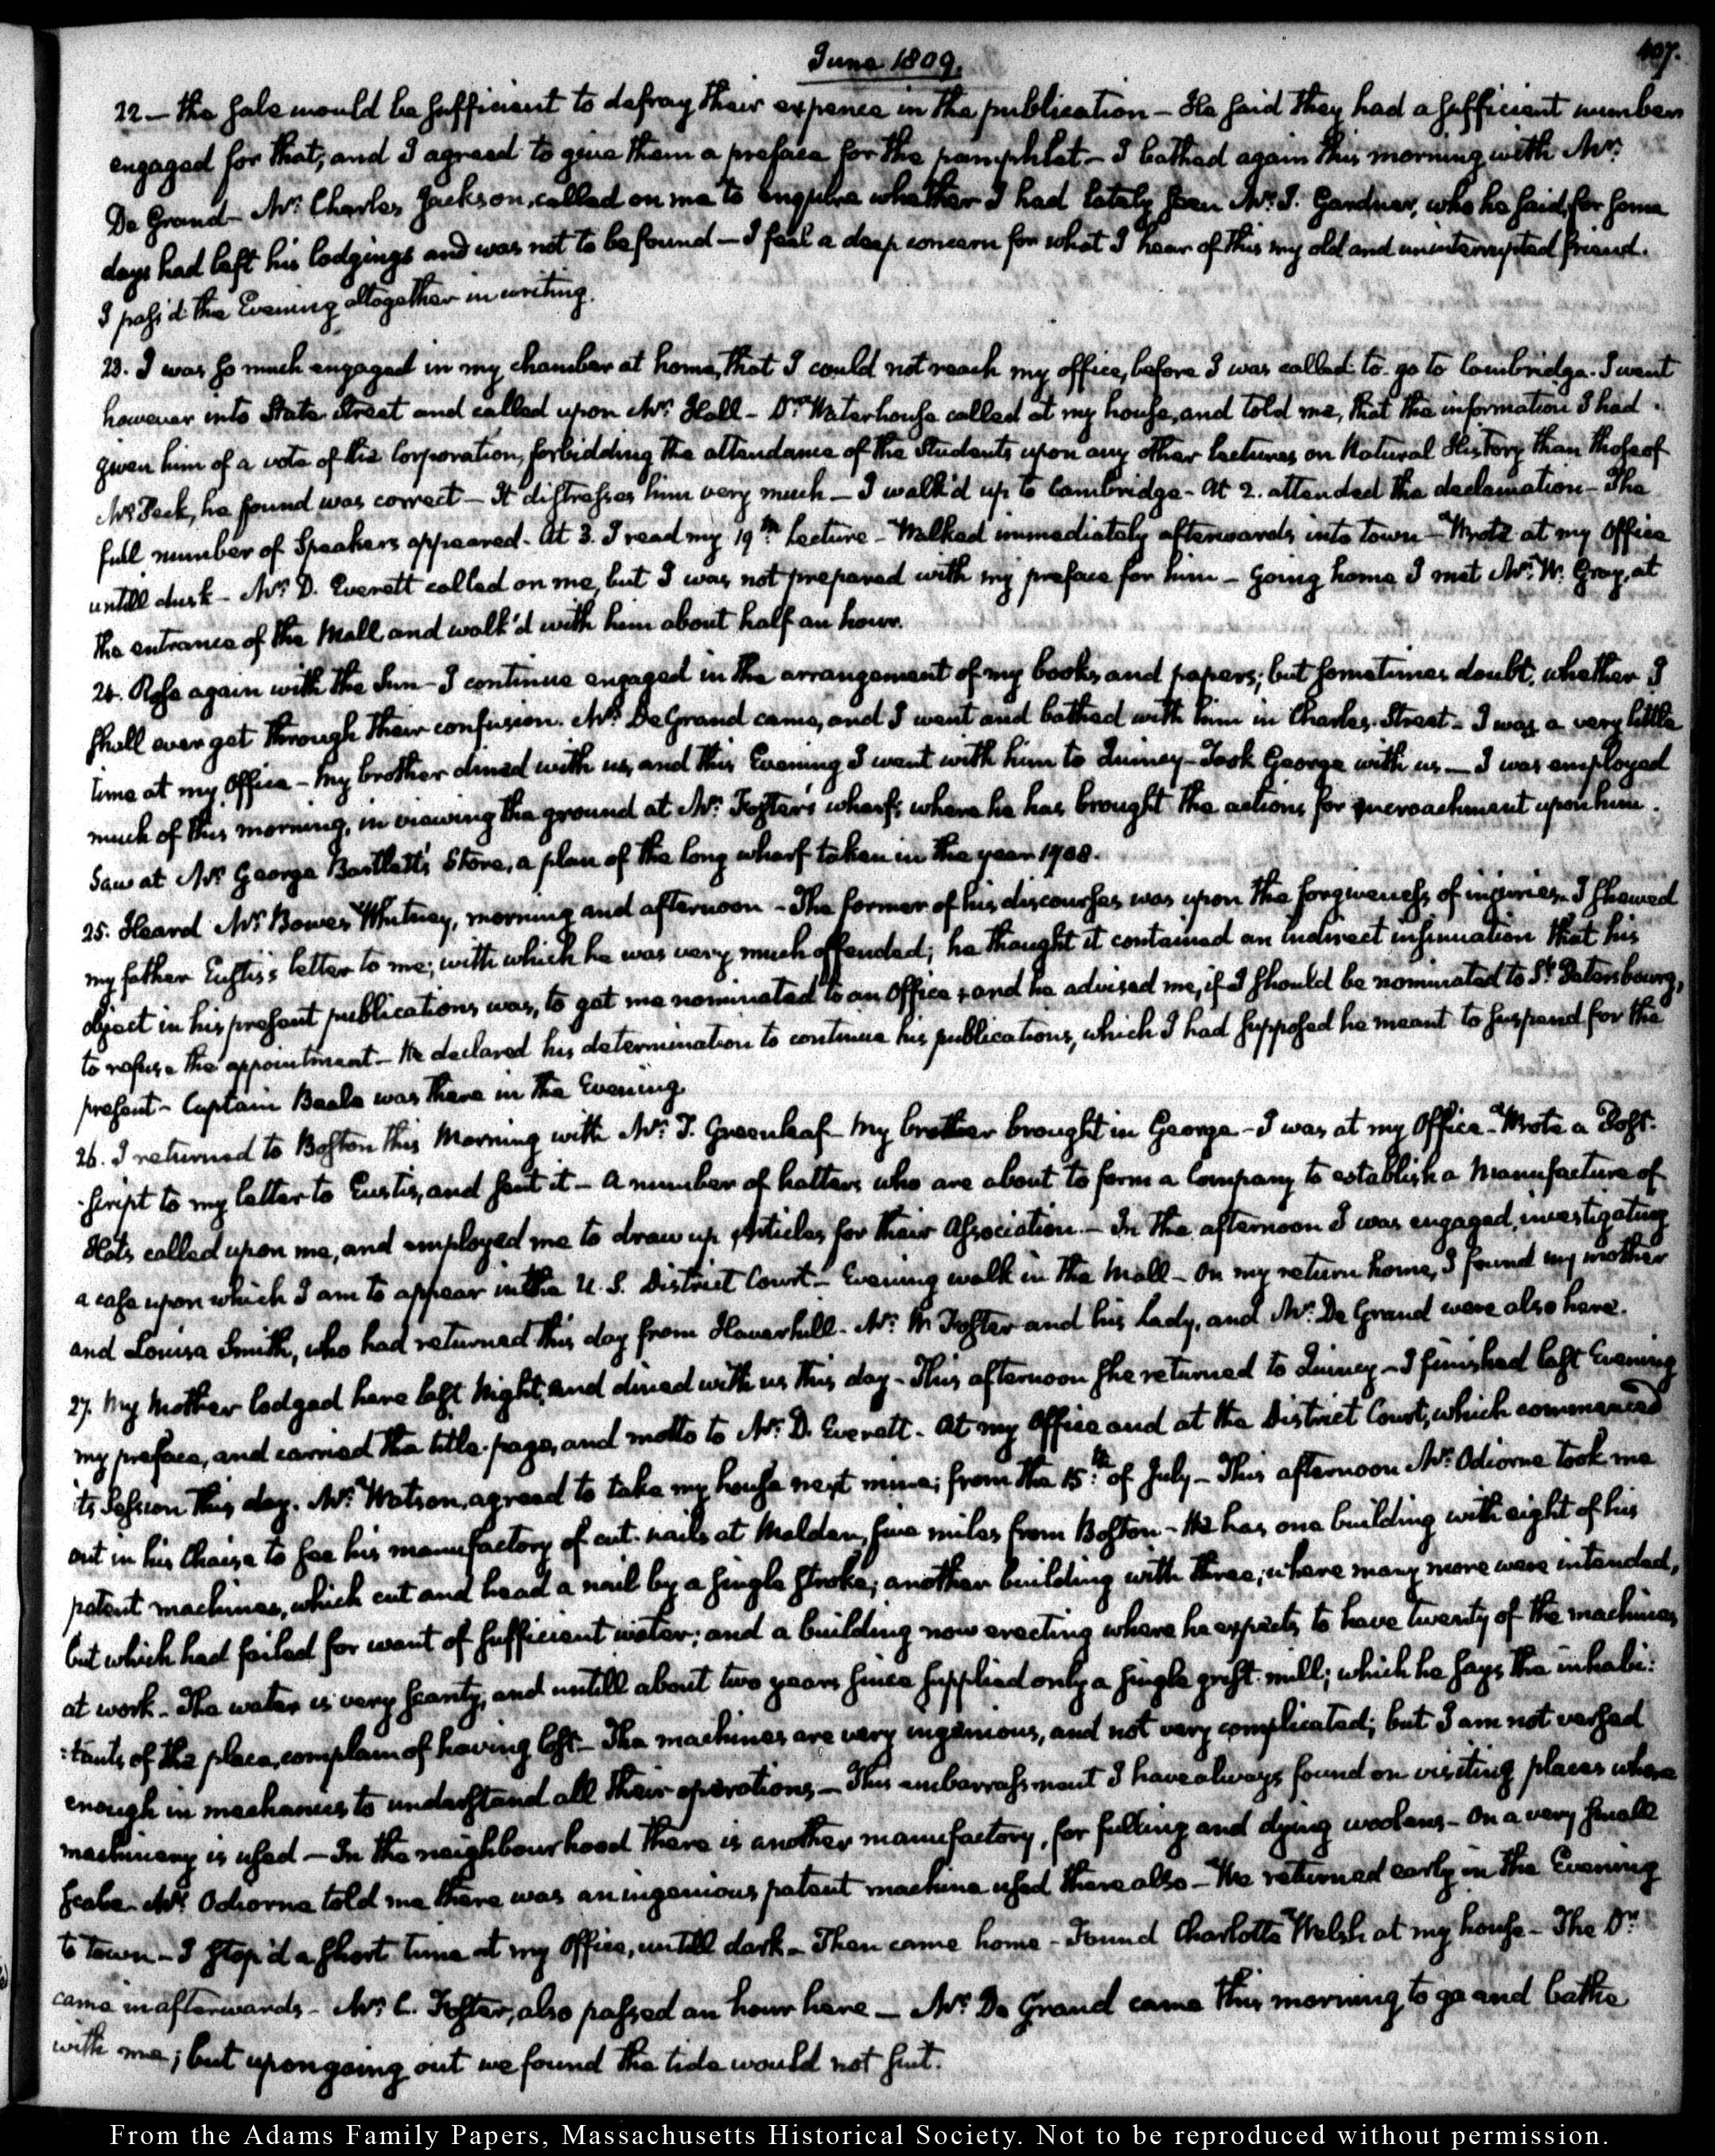 June 1809.
407.
22 — the sale would be sufficient to defray their expence in the publication — He said they had a sufficient number
engaged for that; and I agreed to give them a preface for the pamphlet — I bathed again this morning with Mr:
De Grand — Mr: Charles Jackson, called on me to enquire whether I had lately seen Mr: J. Gardner, who he said, for some
days had left his lodgings and was not to be found — I feel a deep concern for what I hear of this my old and uninterrupted friend.
I pass'd the Evening altogether in writing.
23. I was so much engaged in my chamber at home, that I could not reach my office, before I was called to go to Cambridge. I went
however into State Street and called upon Mr: Hall — Dr: Waterhouse called at my house, and told me, that the information I had
given him of a vote of the Corporation, forbidding the attendance of the Students upon any other Lectures on Natural History than those of
Mr: Peck, he found was correct — It distresses him very much — I walk'd up to Cambridge — At 2. attended the declamation — The
full number of Speakers appeared — At 3. I read my 19th: Lecture — Walked immediately afterwards into town — Wrote at my Office
untill dusk — Mr: D. Everett called on me, but I was not prepared with my preface for him — Going home I met Mr: W. Gray, at
the entrance of the Mall and walk'd with him about half an hour.
24. Rose again with the Sun — I continue engaged in the arrangement of my books and papers; but sometimes doubt, whether I
shall ever get through their confusion. Mr: De Grand came, and I went and bathed with him in Charles Street — I was a very little
time at my Office — My brother dined with us, and this Evening I went with him to Quincy — Took George with us — I was employed
much of this morning, in viewing the ground at Mr: Foster's wharf, where he has brought the actions for encroachment upon him.
Saw at Mr: George Bartlett's Store, a plan of the long wharf taken in the year 1708.
25. Heard Mr: Bowes Whitney, morning and afternoon — The former of his discourses was upon the forgiveness of injuries. I shewed
my father Eustis's letter to me; with which he was very much offended; he thought it contained an indirect insinuation that his
object in his present publications was, to get me nominated to an Office; and he advised me, if I should be nominated to St: Petersbourg,
to refuse the appointment — He declared his determination to continue his publications, which I had supposed he meant to suspend for the
present — Captain Beale was there in the Evening.
26. I returned to Boston this Morning with Mr: T. Greenleaf — My brother brought in George — I was at my Office — Wrote a Post-
-script to my letter to Eustis, and sent it — A number of hatters who are about to form a Company to establish a Manufacture of
Hats called upon me, and employed me to draw up Articles for their Association — In the afternoon I was engaged, investigating
a case upon which I am to appear in the U. S. District Court — Evening walk in the Mall — On my return home, I found my mother
and Louisa Smith, who had returned this day from Haverhill — Mr: W. Foster and his Lady, and Mr: De Grand were also here.
27. My Mother lodged here last Night, and dined with us this day — This afternoon she returned to Quincy — I finished last Evening
my preface, and carried the title-page, and motto to Mr: D. Everett — At my Office and at the District Court, which commenced
its Session this day. Mr: Watson, agreed to take my house next mine; from the 15th: of July — This afternoon Mr: Odiorne took me
out in his Chaise to see his manufactory of cut-nails at Malden, five miles from Boston — He has one building with eight of his
patent machines, which cut and head a nail by a single stroke; another building with three; where many more were intended,
but which had failed for want of sufficient water; and a building now erecting where he expects to have twenty of the machines
at work — The water is very scanty, and untill about two years since supplied only a single grist-mill; which he says the inhabi:
:tants of the place, complain of having lost — The machines are very ingenious, and not very complicated; but I am not versed
enough in mechanics to understand all their operations — This embarrassment I have always found on visiting places where
machinery is used — In the neighbourhood there is another manufactory, for fulling and dying woolens — On a very small
scale — Mr: Odiorne told me there was an ingenious patent machine used there also — We returned early in the Evening
to town — I stop'd a short time at my Office, untill dark — Then came home — Found Charlotte Welsh at my house — The Dr:
came in afterwards — Mr: C. Foster, also passed an hour here — Mr: De Grand came this morning to go and bathe
with me; but upon going out we found the tide would not suit.
From the Adams Family Papers, Massachusetts Historical Society. Not to be reproduced without permission.